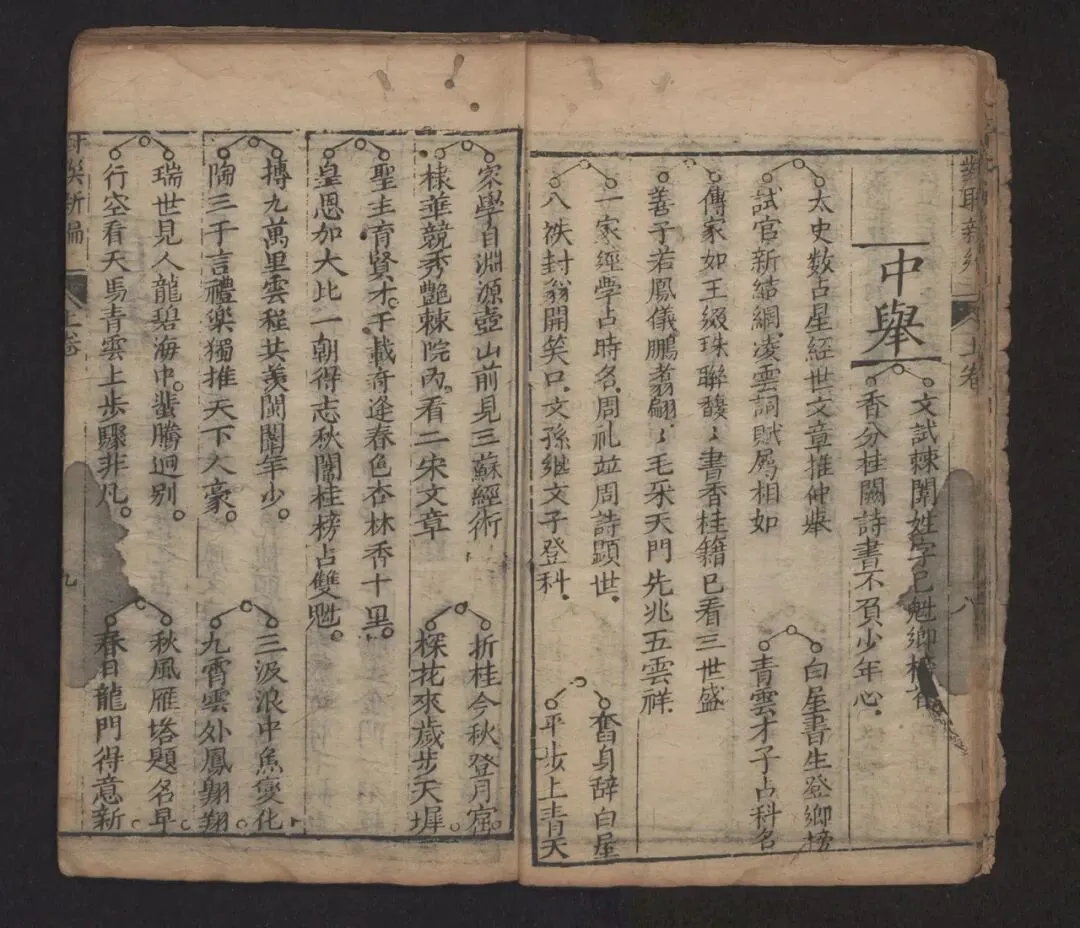 對聯新
上卷
八
中舉
文試棘闈姓字已魁鄉
香分桂闕詩書不負少年心
太史数占星經世文章推仲舉
試官新結網凌雲詞賦屬相如
白屋書生登鄉榜
青雲才子占科名
傳家如王綴珠聯馥〻書香桂籍已看三世盛
善子若鳳儀鵬翥翩〻毛采天門先兆五雲祥
一家經學占時名周礼並周詩顕世
八袟封翁開笑口文孫継文子登科
奮身辞白屋
平步上青天
家學自淵源壺山前見三蘇經術
棣華競秀艷棘院內看二宋文章
折桂今秋登月窟
探花來歲步天墀
聖主育賢才千載奇逢春色杏林香十里
皇恩加大比一朝得志秋闈桂榜占雙魁
摶九萬里雲程共羨閩闈年少
陶三千言禮樂獨推天下人豪
三汲浪中魚變化
九霄雲外鳳翱翔
瑞世見人龍碧海中蜚騰迥別
行空看天馬青雲上步驟非凡
秋風雁塔題名早
春日龍門得意新
新編
上卷
九